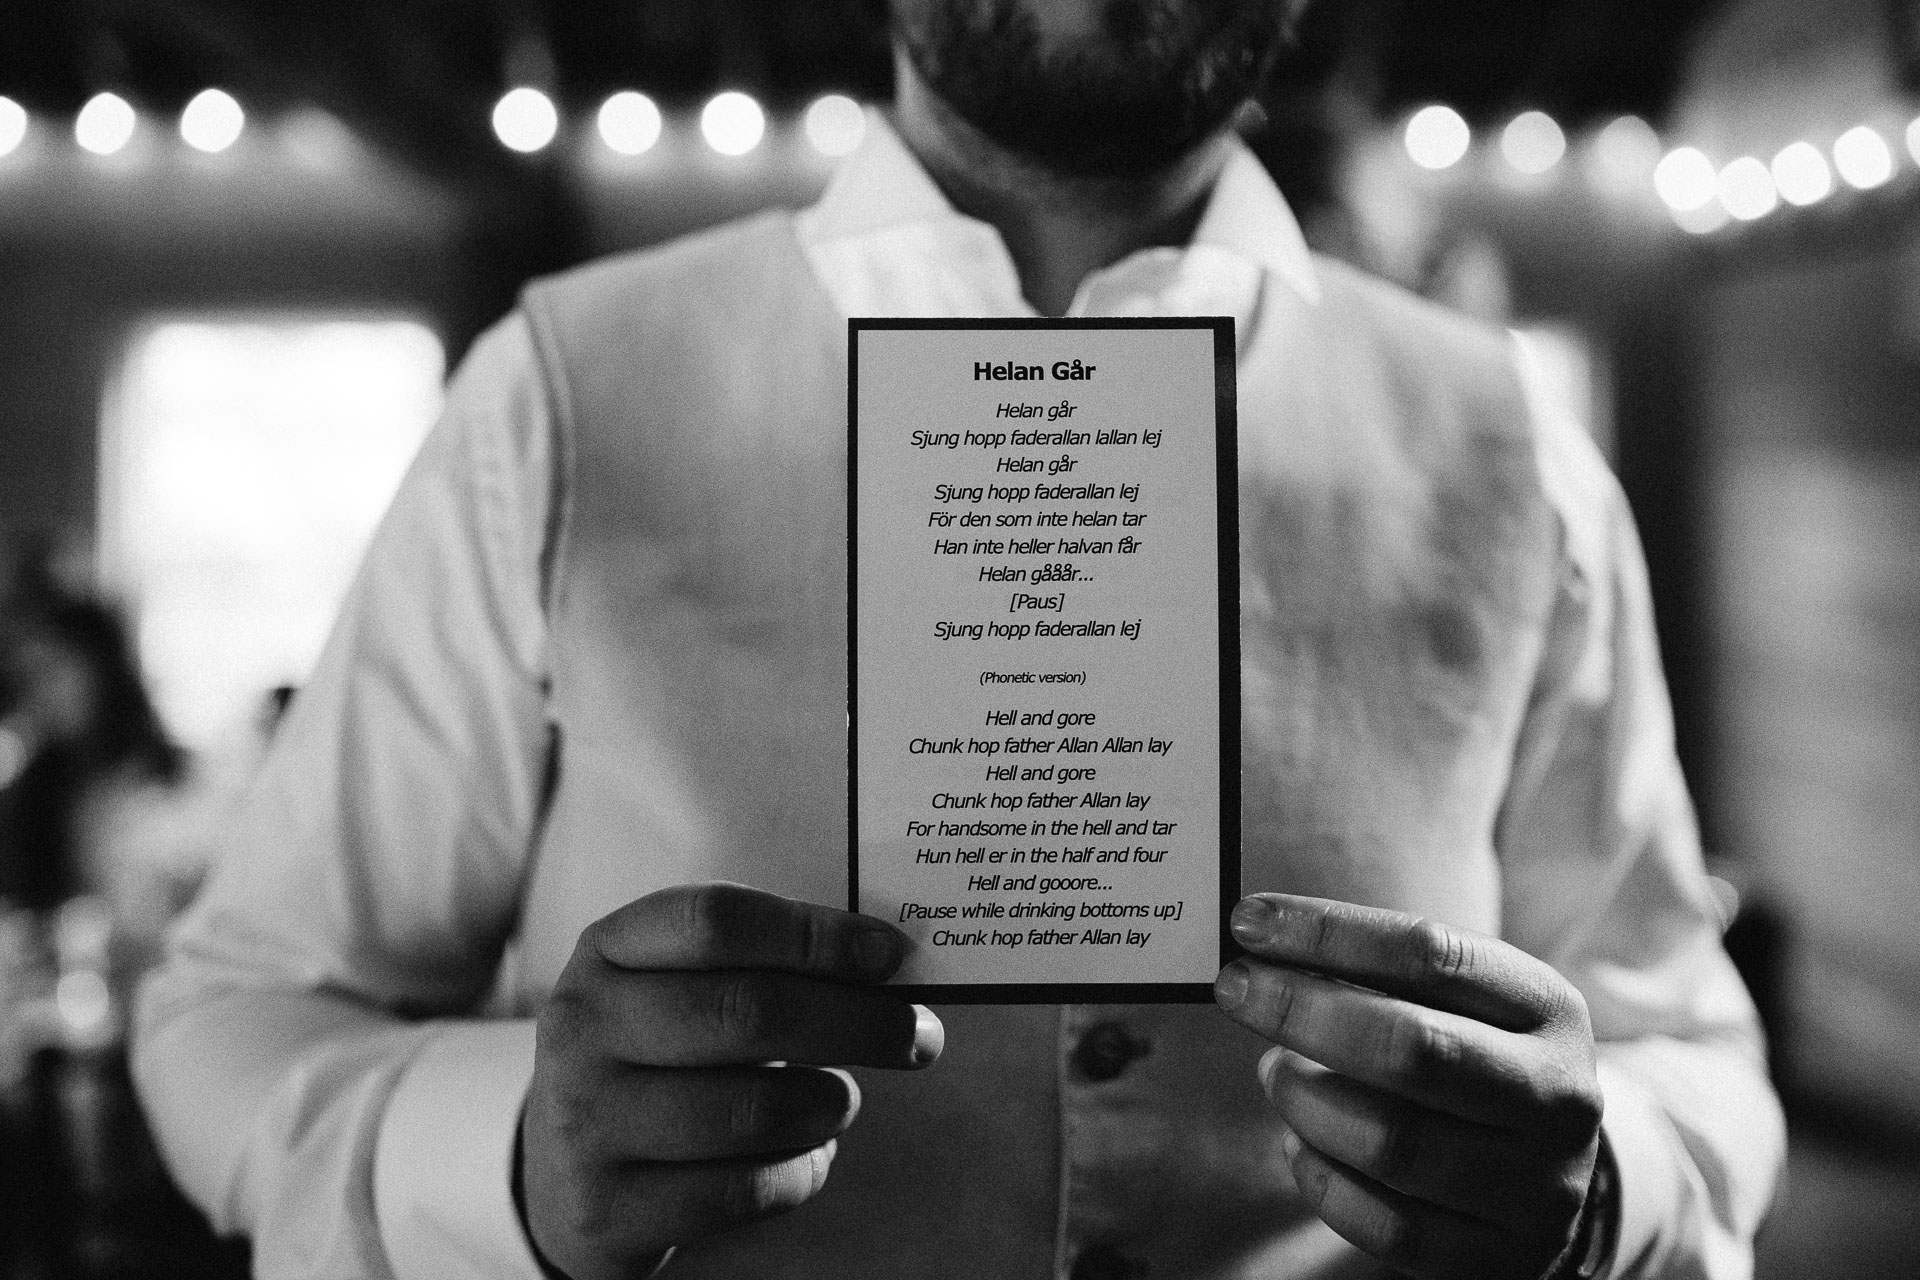 Helan Går
Helan går
Sjung hopp faderallan lallan lej
Helan går
Sjung hopp faderallan lej
För den som inte helan tar
Han inte heller halvan får
Helan gååår...
[Paus]
Sjung hopp faderallan lej
(Phonetic version)
Hell and gore
Chunk hop father Allan Allan lay
Hell and gore
Chunk hop father Allan lay
For handsome in the hell and tar
Hun hell er in the half and four
Hell and gooore...
[Pause while drinking bottoms up]
Chunk hop father Allan lay